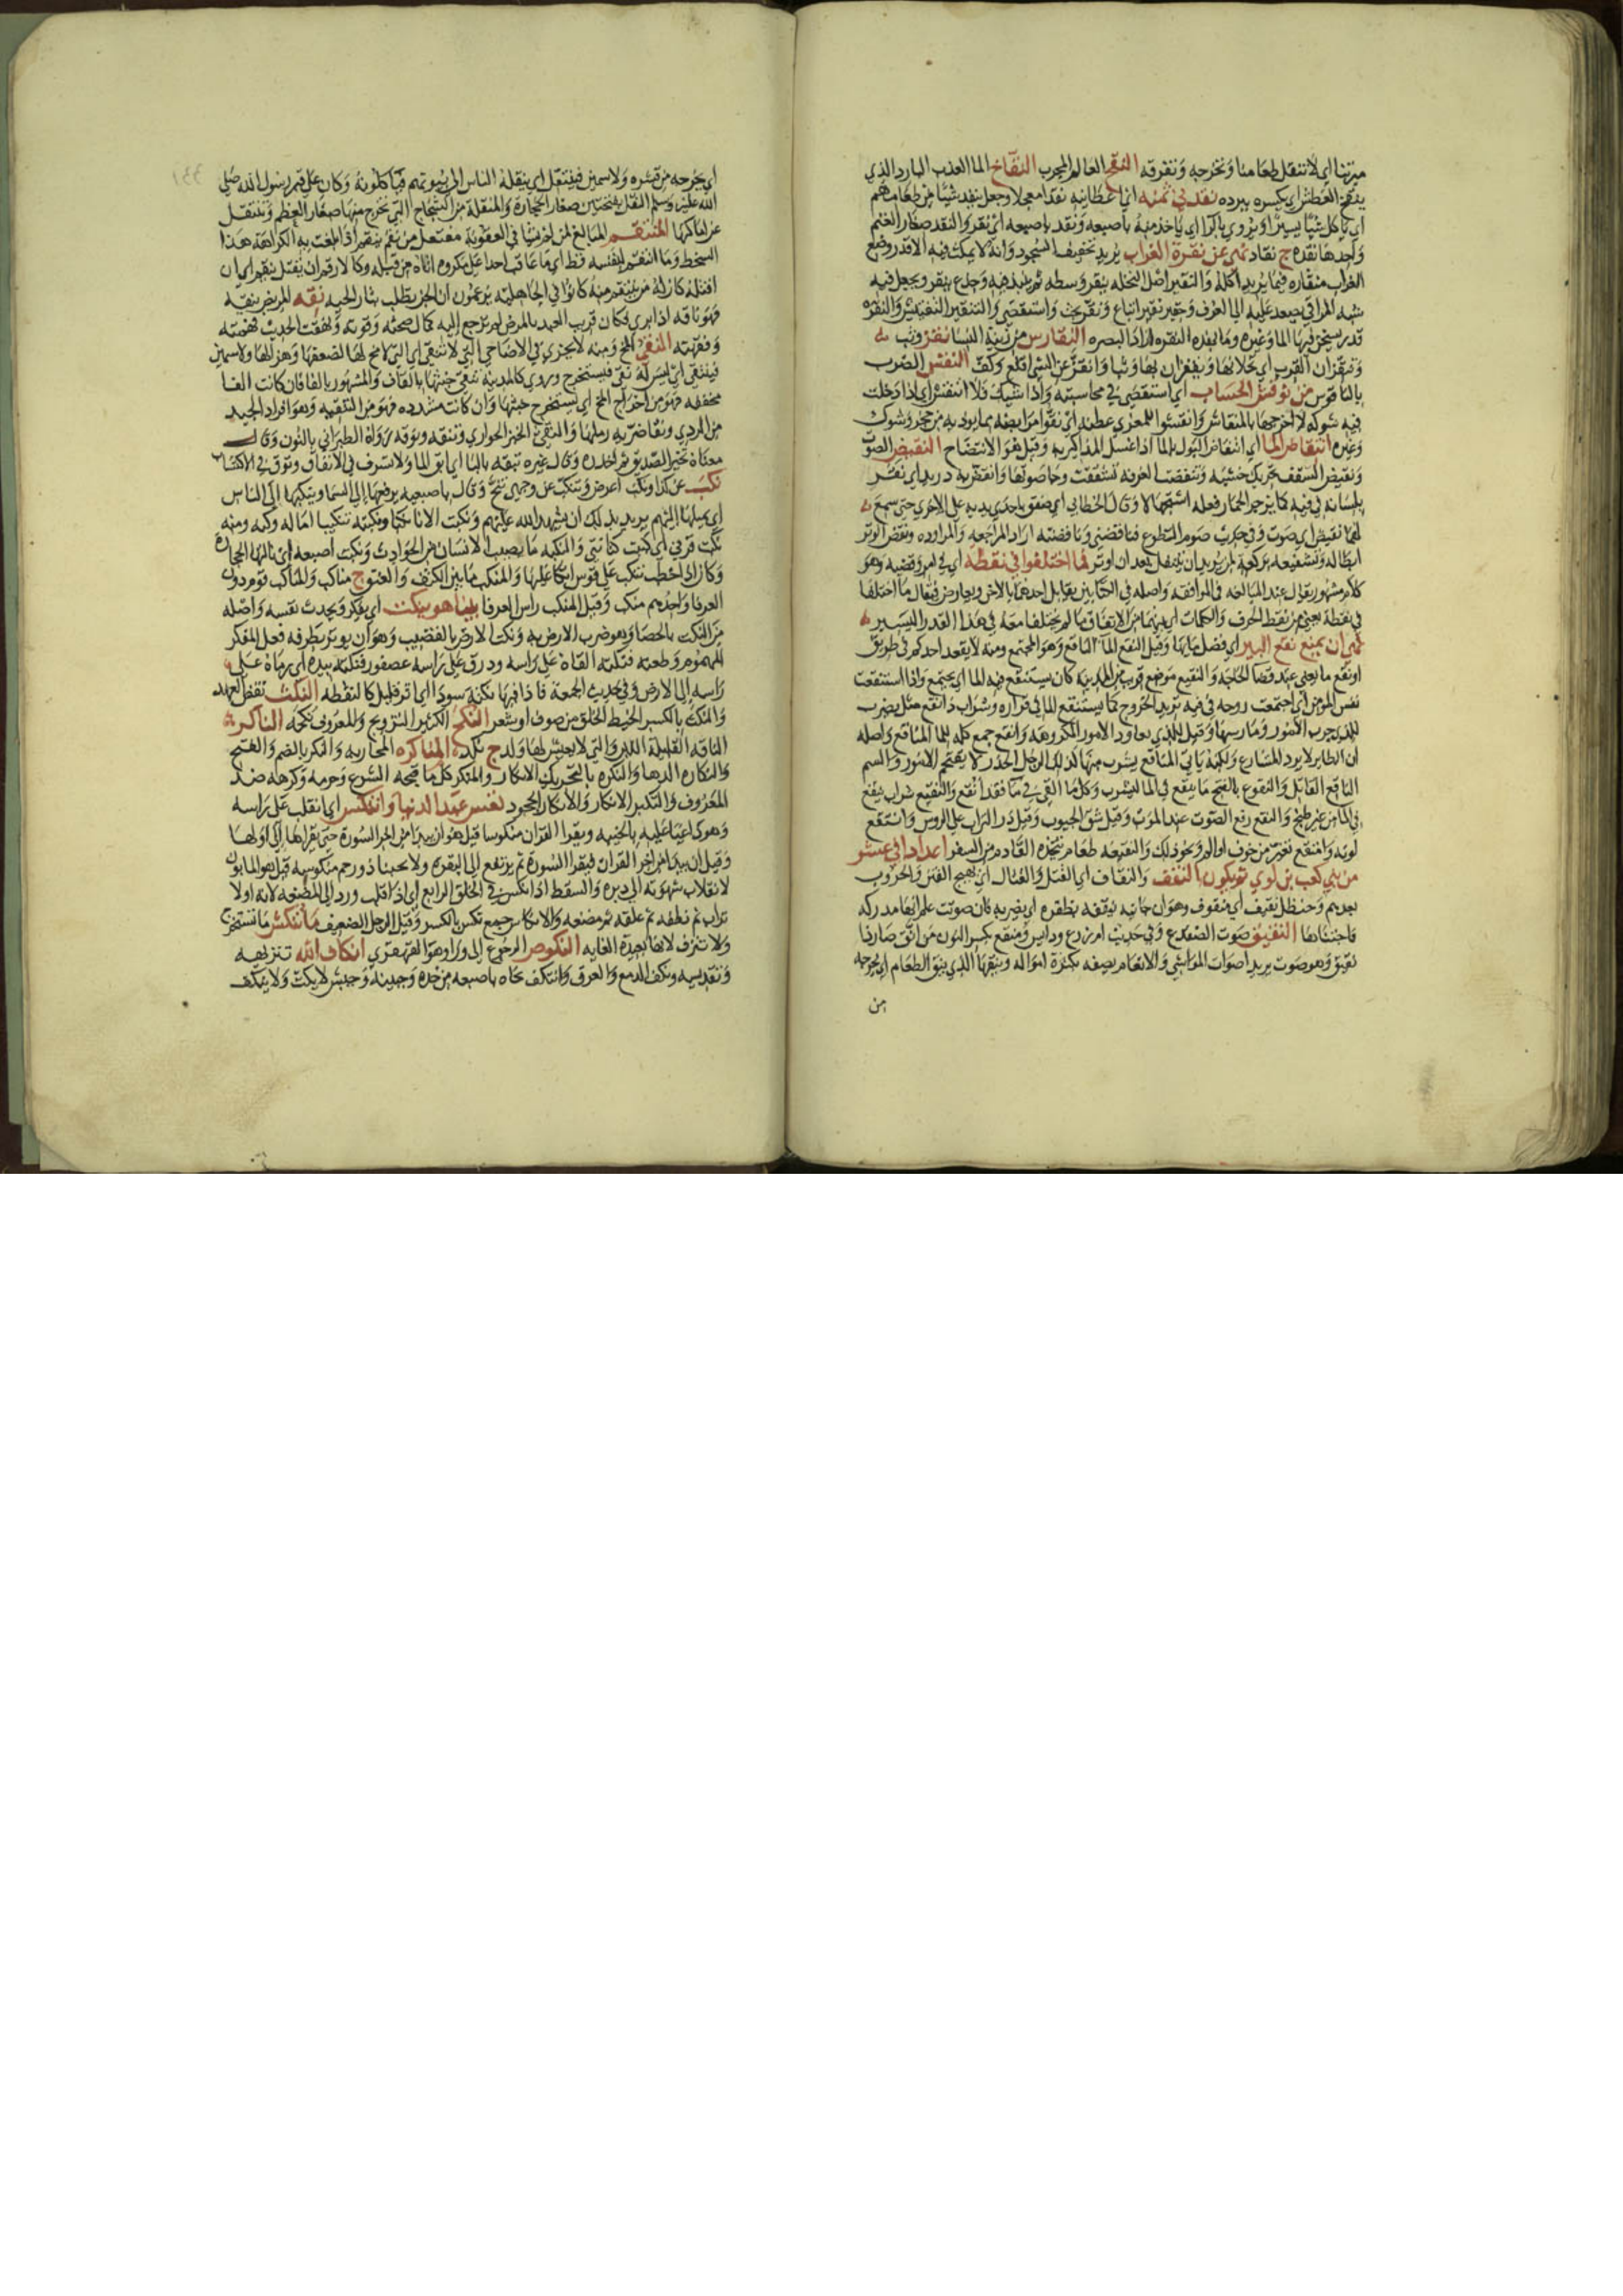 ميرتنا اي لا تنقل طعامنا وتخرجه وتفرقه النقر العالم المجرب النقاخ الما العذب البارد الذي
ينقخ العطش اي يكسره ببرده نقدني ثمنه اي اعطانيه نقدا معجلا وجعل ينقد شيًا من طعامهم
اي ياكل شيًا يسيرًا ويروي بالرا اي ياخذ منه باصبعه ونقد باصبعه اي نقر والنقد صغار الغنم
واحدها نقده ج نقاد نهي عن نقرة الغراب يريد تخفيف السجود وانه لا يمكث فيه الا قدر وضع
الغراب منقاره فيما يريد اكله والنقير اصل النخله ينقر وسطه ثم ينبذ فيه وجذع ينقر ويجعل فيه
شبه المراقي يصعد عليه الي الغرف وحقير نقير اتباع ونقر بحث واستقصي والتنقير التفتيش والنقره
قدر يسخن فيها الما وغيره النقارس من زينة النسا نقز وثب
وتنقزان القرب اي تحملانها وتقفزان بها وثبا وانقز عن الشي اقلع وكف النقس الضرب
بالناقوس من نوقش الحساب اي استقصي في محاسبته واذا شيك فلا انتقش اي اذا دخلت
فيه شوكه لا اخرجها بالمنقاش وانقشوا للمعزي عطنه اي نقوا مرابضه مما يوذيه من حجر وشوك
وغيره انتقاص الما اي انتقاص البول بالما اذا غسل المذاكير به وقيل هو الانتضاح النقيض الصوت
ونقيض السقف تحريك خشبه وتنقضت الغرفه تشققت وجا صوتها وانقض به دريد اي نقر
بلسانه في فيه كما يزجر الحمار فعله استجهالا وقال الخطابي اي صفق باحدي يديه علي الاخري حتي سمع
لهما نقيض اي صوت وفي حديث صوم التطوع فناقضني وناقضته اراد المراجعه والمراوده ونقض الوتر
ابطاله وتشفيعه بركعة لمن يريد ان يتنفل بعد ان اوتر فما اختلفوا في نقطة اي في امر وقضيه وهو
كلام مشهور يقال عند المبالغه في الموافقه واصله في الكتابين يقابل احدهما بالاخر ويعارض فيقال ما اختلفا
في نقطة يعني من نقط الحرف والكلمات اي بينهما من الاتفاق ما لم يختلفا معه في هذا القدر اليسير
نهي ان يمنع نقع البير اي فضل مايها وقيل النقع الما الناقع وهو المجتمع ومنه لا يقعد احدكم في طريق
او نقع ما يعني عند قضا الحاجه والنقيع موضع قريب من المدينه كان يستنقع فيه الما اي يجتمع واذا استنقعت
نفس المومن اي اجتمعت روحه في فيه تريد الخروج كما يستنقع الما في قراره وشراب انقع مثل يضرب
للذي جرب الامور ومارسها وقيل للذي يعاود الامور المكروهه وانقع جمع
ان الطاير لا يرد المشارع ولكنه ياتي المناقع يشرب منها كذلك الرجل الحذر لا يقتحم الامور والسم
الناقع القاتل والنقوع بالفتح ما ينقع في الما ليشرب وكل ما القي في ما فقد انقع والنقيع شراب ينقع
في الما من غير طبخ والنقع رفع الصوت عند الموت وقيل شق الجيوب وقيل ذر التراب علي الروس وانتقع
لونه وامتقع تغير من خوف او الم ونحو ذلك والنقيعه طعام يتخذه القادم من السفر اعدد اثني عشر
من بني كعب بن لوي ثم يكون النقف والنقاف اي القتل والقتال اي تهيج الفتن والحروب
بعدهم وحنظل نقيف اي منقوف وهو ان جانيه ينقفه بظفره اي يضربه فان صوتت علم انها مدركه
فاجتناها النقيق صوت الضفدع وفي حديث ام زرع ودايس ومنقع بكسر النون من انق صار ذا
نقيق وهو صوت يريد اصوات المواشي والانعام يصفه بكثرة امواله وبفتحها الذي ينقي الطعام اي يخرجه
من
اي يخرجه من قشره ولا سمين فينتقل اي ينقله الناس الي بيوتهم فياكلونه وكان علي قبر رسول الله صلي
الله عليه وسلم النقل بفتحتين صغار الحجارة والمنقلة من الشجاج التي تخرج منها صغار العظم وتنتقل
عن اماكنها المنتقم المبالغ لمن يشا في العقوبة مفتعل من نقم ينقم اذا بلغت به الكراهة هذا
السخط وما انتقم لنفسه قط اي ما عاقب احدا علي مكروه اتاه من قبله وكالارقم ان يقتل ينقم اي ان
اقتله كان له من ينتقم منه كانوا في الجاهلية يزعمون ان الجن يطلب بثار الحية نقه المريض ينقه
فهو ناقه اذا بري وكان قريب العهد بالمرض لم يرجع اليه كمال صحته وقوته ونقهت الحديث فهمته
وفقهته النقي المخ ومنه لا يجزي في الاضاحي التي لا تنقي اي التي لا مخ لها لضعفها وهزالها ولا سمين
فينتقي اي ليس له نقي فيستخرج وروي كالمدينه تنقي خبثها بالقاف والمشهور بالفا فان كانت الفا
مخففه فهو من اخراج المخ اي يستخرج خبثها وان كانت مشدده فهو من التنقيه وهو افراد الجيد
من الردي ونقا ضربه رملها والنقي الخبز الحواري وتنقه وتوقه رواه الطبراني بالنون وقال
معناه تخير الصديق ثم احذره وقال غيره تبقه بالبا اي ابق المال ولا تسرف في الانفاق وتوق في الاكتساب
نكب عن كذا ونكب اعرض وتنكب عن وجهي تنح وقال باصبعه يرفعها الي السما وينكبها الي الناس
اي يميلها اليهم يريد بذلك ان يشهد الله عليهم ونكبت الانا نكبا ونكبته تنكيبا اماله وكبه ومنه
نكب قرني اي كبت كنانتي والنكبه ما يصيب الانسان من الحوادث ونكبت اصبعه اي نالتها الحجارة
وكان اذا خطب تنكب علي قوس اتكا عليها والمنكب ما بين الكتف والعنق ج مناكب والمناكب قوم دون
العرفا واحدهم منكب وقيل المنكب راس العرفا بينا هو ينكت اي يفكر ويحدث نفسه واصله
من النكت بالحصا وهو ضرب الارض به ونكت الارض بالقضيب وهو ان يوثر بطرفه فعل المفكر
المهموم وطعنه فنكته القاه علي راسه وذرق علي راسه عصفور فنكته بيده اي رماه علي
راسه الي الارض وفي حديث الجمعة فاذا فيها نكتة سودا اي اثر قليل كالنقطة النكث نقض العهد
والنكث بالكسر الخيط الخلق من صوف او شعر النكح الكثير التزويج والمعروف نكحه الناكد
الناقه القليلة اللبن والتي لا يعيش لها ولد ج نكد المناكره المحاربه والنكر بالضم والفتح
والنكاره الدها والنكره بالتحريك الانكار والمنكر كل ما قبحه الشرع وحرمه وكرهه ضد
المعروف والنكير الانكار والانكار الجحود تعس عبد الدنيا وانتكس اي انقلب علي راسه
وهو دعا عليه بالخيبه ويقرا القران منكوسا قيل هو ان يبدا من اخر السورة حتي يقراها الي اولها
وقيل ان يبدا من اخر القران فيقرا السورة ثم يرتفع الي البقره ولا يحبنا ذو رحم منكوسه قيل هو المابون
لانقلاب شهوته الي دبره والسقط اذا نكس في الخلق الرابع اي اذا قلب ورد الي المضغه لانه اولا
تراب ثم نطفه ثم علقه ثم مضغه والانكاس جمع نكس بالكسر وقيل الرجل الضعيف ما تنكش ما تستخرج
ولا تنزف لانها بعيدة الغايه النكوص الرجوع الي ورا وهو القهقري انكاف الله تنزيهه
وتقديسه ونكف الدمع والعرق وانتكف نحاه باصبعه من خده وجبينه وجيش لا يكت ولا ينكف